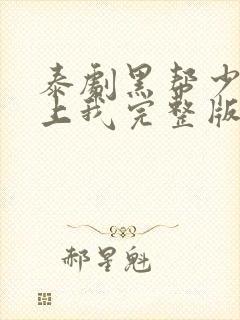 泰剧黑帮少
上我完整版
郝星魁